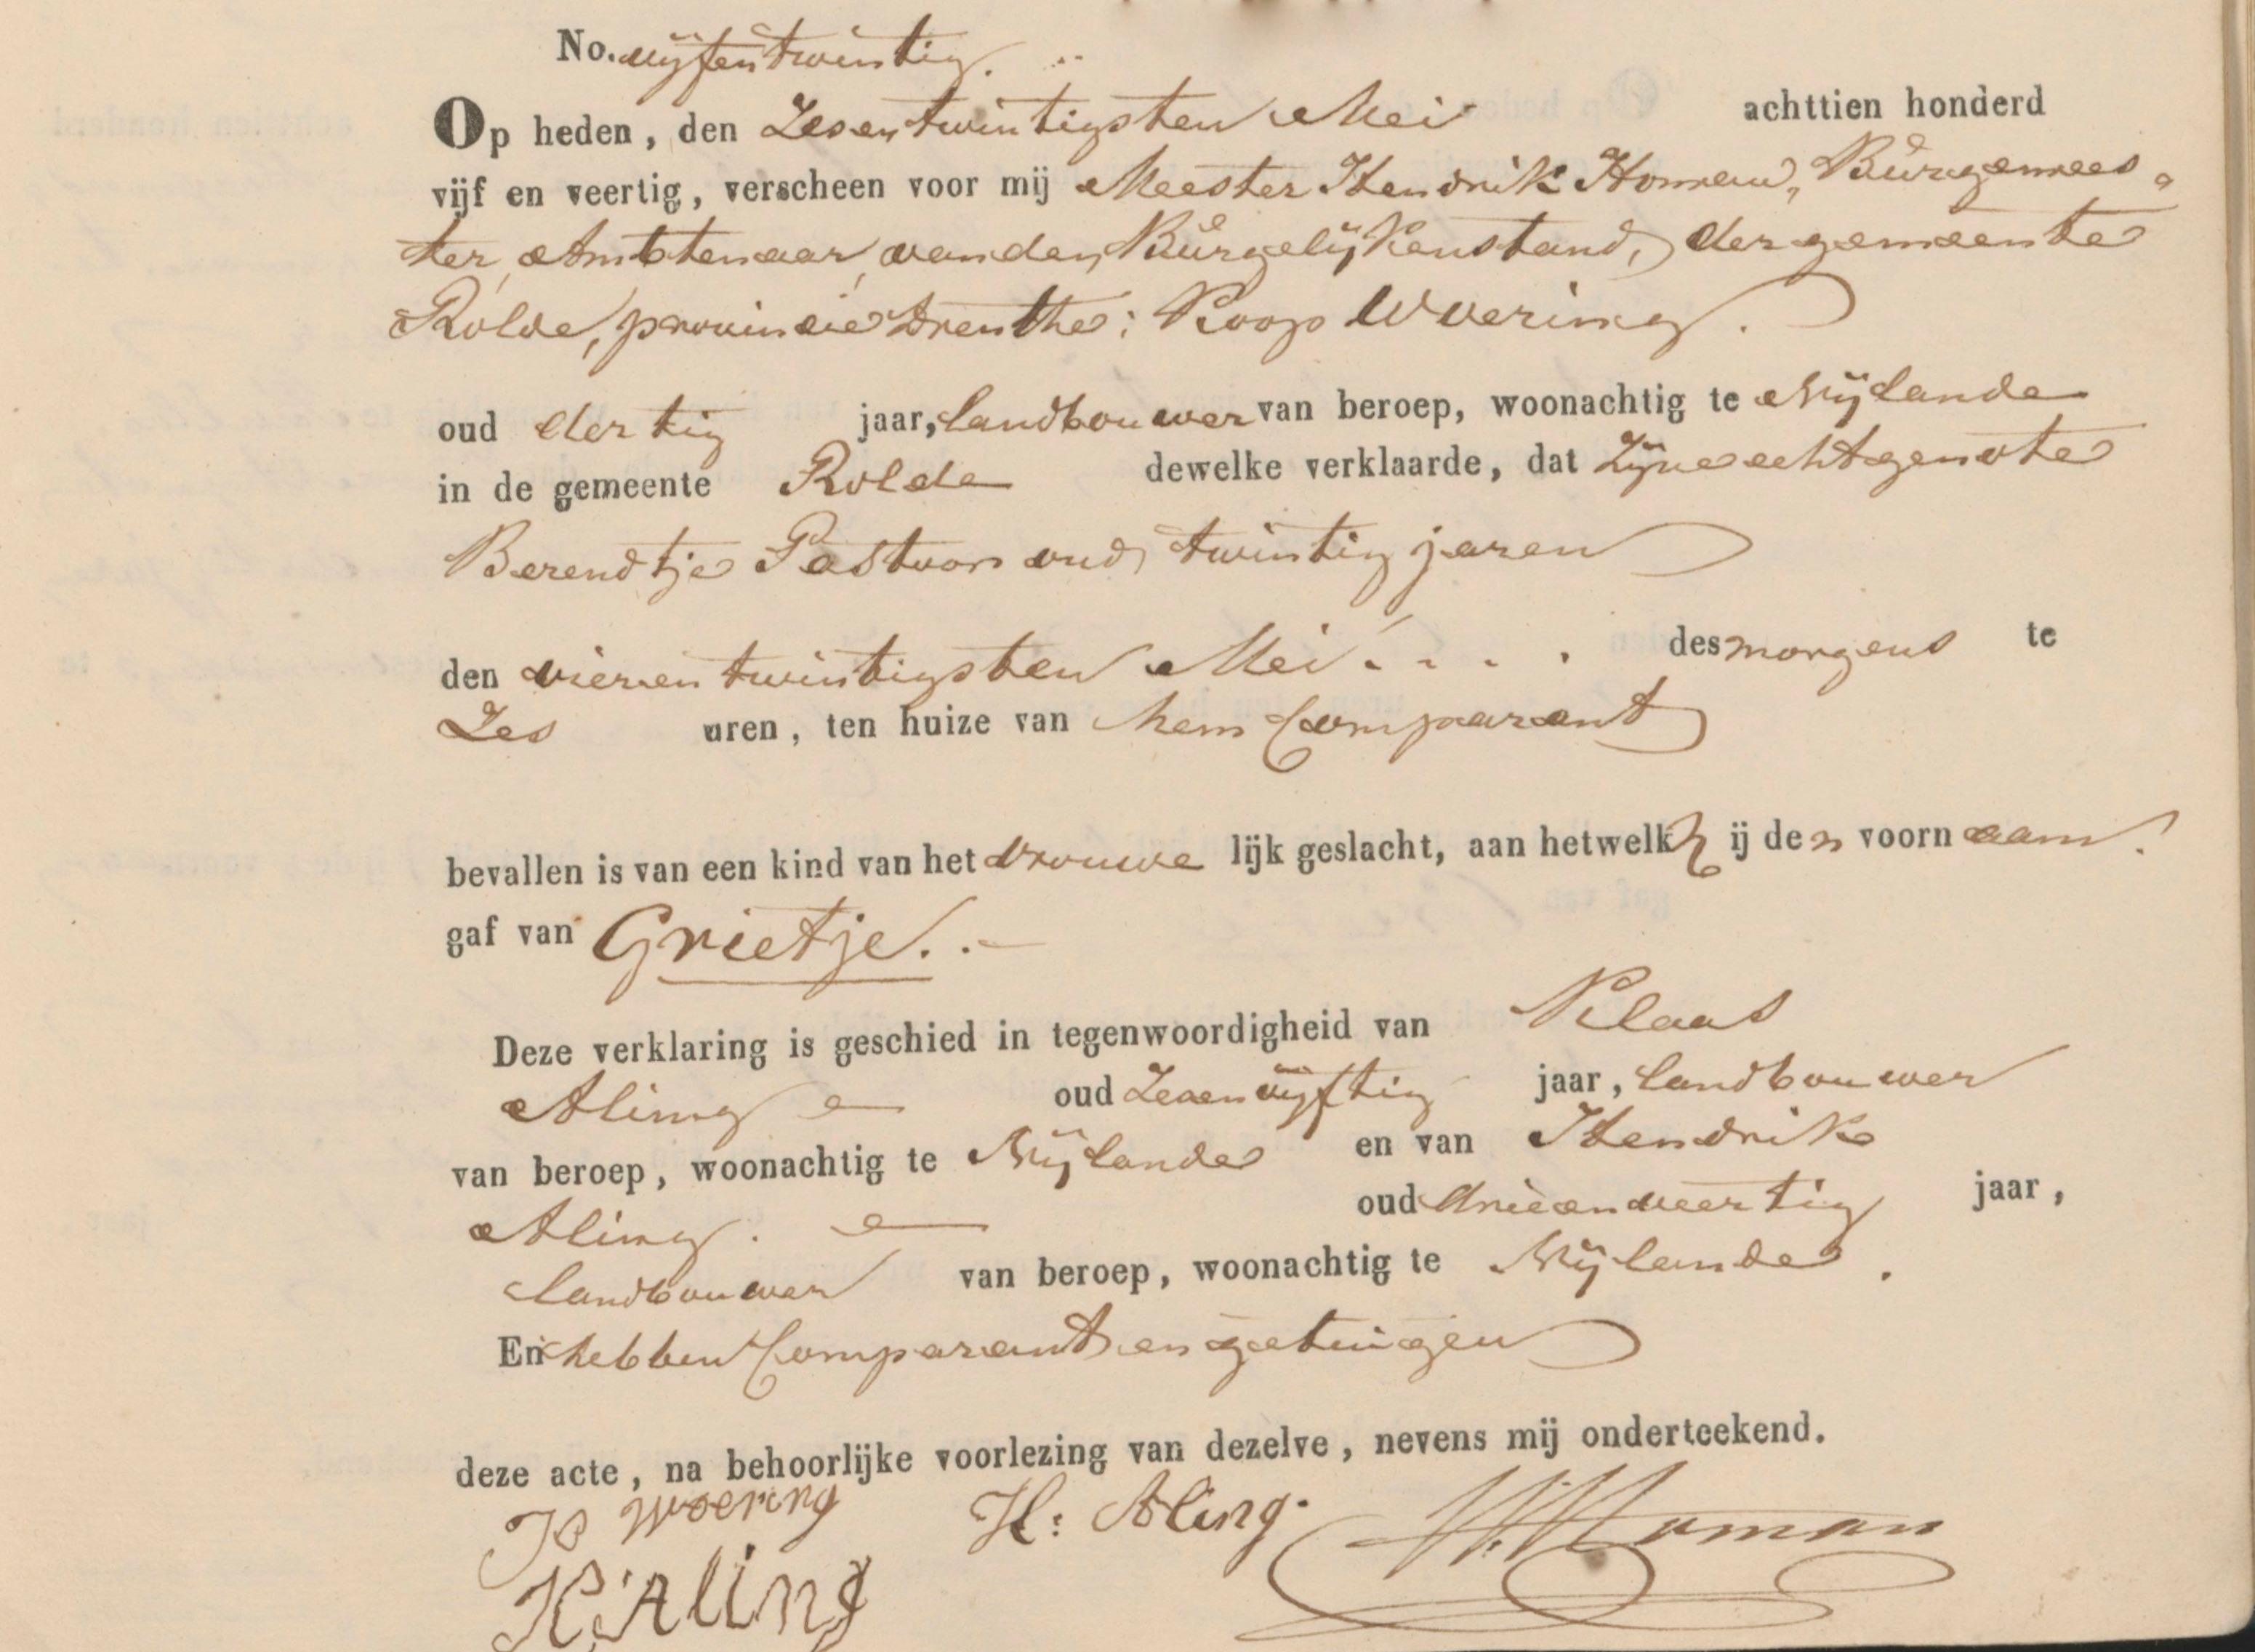 No. vijfentwintig.
Op heden, den Zesentwintigsten Mei achttien honderd
vijf en veertig, verscheen voor mij Meester Hendrik Homan, Burgemees-
ter, Ambtenaar van den Burgelijkenstand, der gemeente
Rolde, provincie Drenthe: Koop Woering.
oud dertig jaar, landbouwer van beroep, woonachtig te Nijlande
in de gemeente Rolde dewelke verklaarde, dat Zijne echtgenote
Berendtje Pastoor oud twintig jaren
den vierentwintigsten Mei . . . . des morgens te
Zes uren, ten huize van hem Comparant
bevallen is van een kind van het vrouwe lijk geslacht, aan hetwelk Z ij de n voorn aam
gaf van Grietje.
Deze verklaring is geschied in tegenwoordigheid van Klaas
Aling oud Zesenvijftig jaar, landbouwer
van beroep, woonachtig te Nijlande en van Hendrik
Aling. oud drieenveertig jaar,
landbouwer van beroep, woonachtig te Nijlande.
En hebben Comparant en getuigen
deze acte, na behoorlijke voorlezing van dezelve, nevens mij onderteekend.
K Woering H: Aling. H. Homan
K. Aling